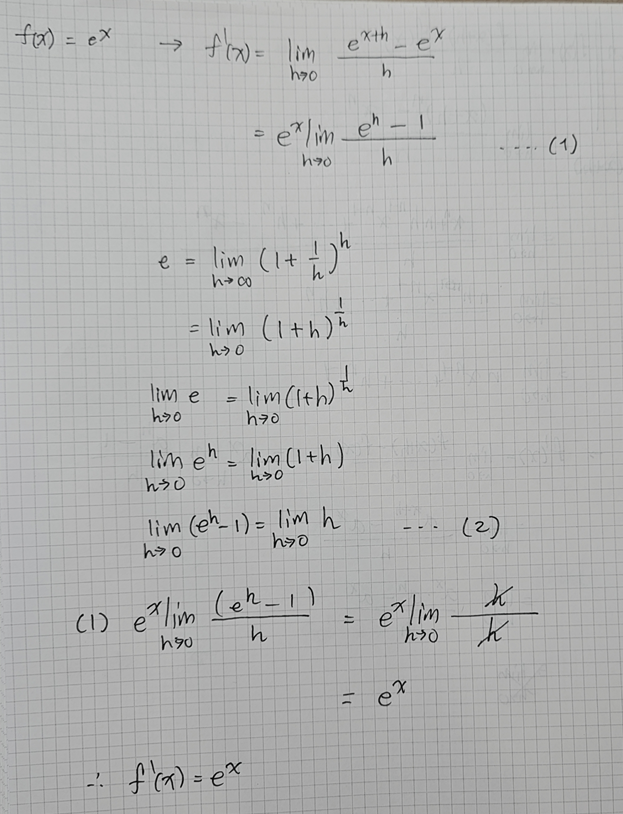 f(x) = e^x → f'(x) = lim_{h→0} (e^{x+h} - e^x)/h
= e^x lim_{h→0} (e^h - 1)/h ---- (1)
e = lim_{h→∞} (1 + 1/h)^h
= lim_{h→0} (1+h)^{1/h}
lim_{h→0} e = lim_{h→0} (1+h)^{1/h}
lim_{h→0} e^h = lim_{h→0} (1+h)
lim_{h→0} (e^h - 1) = lim_{h→0} h --- (2)
(1) e^x lim_{h→0} (e^h - 1)/h = e^x lim_{h→0} h/h
= e^x
∴ f'(x) = e^x